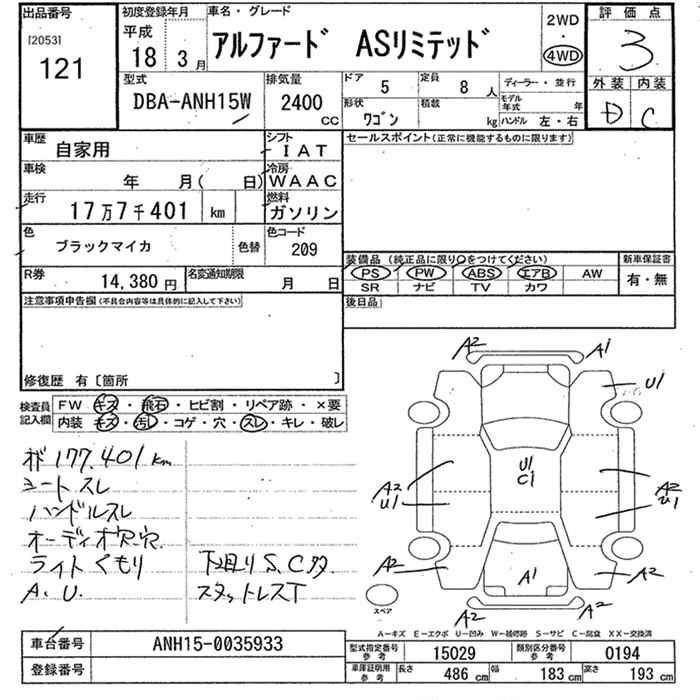 出品番号
[2053]
121
初度登録年月
平成
18年3月
車名・グレード
アルファード ASリミテッド
2WD
・
4WD
評価点
3
外装 内装
D C
型式
DBA-ANH15W
排気量
2400
CC
ドア
5
定員
8 人
形状
ワゴン
積載
kg
ディーラー・並行
モデル年式 年
ハンドル 左・右
車歴
自家用
シフト
IAT
車検
年 月( 日)
冷房
WAAC
走行
17万7千401 km
燃料
ガソリン
色
ブラックマイカ
色替
色コード
209
R券
14,380 円
名変通知期限
月 日
セールスポイント(正常に機能するものに限ります)
装備品(純正品に限り〇をつけてください)
PS PW ABS エアB AW
SR ナビ TV カワ
新車保証書
有・無
後日品
注意事項申告欄(不具合内容等は具体的に記入して下さい)
修復歴 有〔箇所 〕
検査員記入欄
FW キズ・飛石・ヒビ割・リペア跡・×要
内装 キズ・汚レ・コゲ・穴・スレ・キレ・破レ
177.401km
シートスレ
ハンドルスレ
オーディオ欠.穴
ライトくもり
A.U.
下回りS.Cタ
スタットレスT
A2 A1
U1
U1
C1
A2
U1
A2
U1
A2
A1
A2
A2
A2
スペア
A－キズ E－エクボ U－凹み W－補修跡 S－サビ C－腐食 XX－交換済
車台番号
ANH15-0035933
登録番号
型式指定番号 参考
15029
類別区分番号 参考
0194
車庫証明用 参考
長さ 486 cm 幅 183 cm 高さ 193 cm